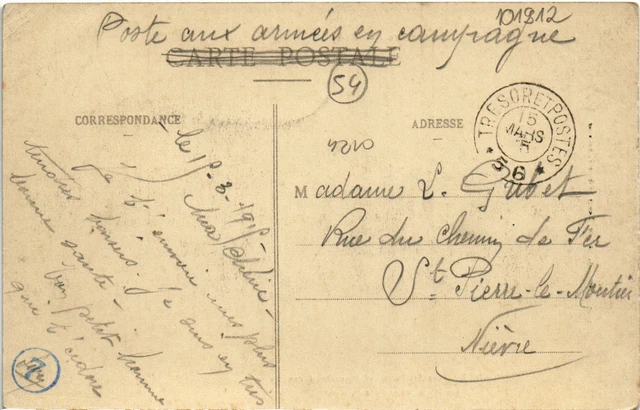 101812
Poste aux armées en campagne
CARTE POSTALE
54
CORRESPONDANCE
ADRESSE
TRESOR ET POSTES
15
MARS
* 56 *
le 15-3-1915
Ma Chérie
Je t'envoie mes plus
tendres baisers. Je suis en très
bonne santé.
Ton petit homme
qui t'adore
Madame L. Gubet
Rue du Chemin de Fer
St Pierre-le-Moutier
Nièvre